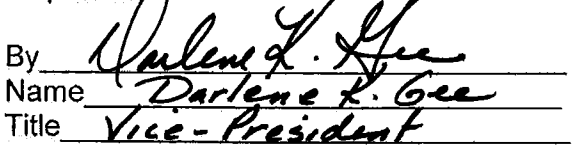 By Darlene K. Gee
Name Darlene K. Gee
Title Vice-President